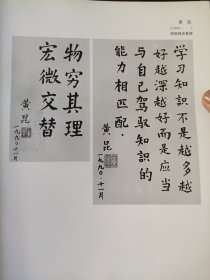 黄 昆
学习知识不是越多越
好越深越好而是应当
与自己驾驭知识的
能力相匹配．
黄昆
一九九〇·十一月
物穷其理
宏微交替
黄昆
一九九〇·十一月